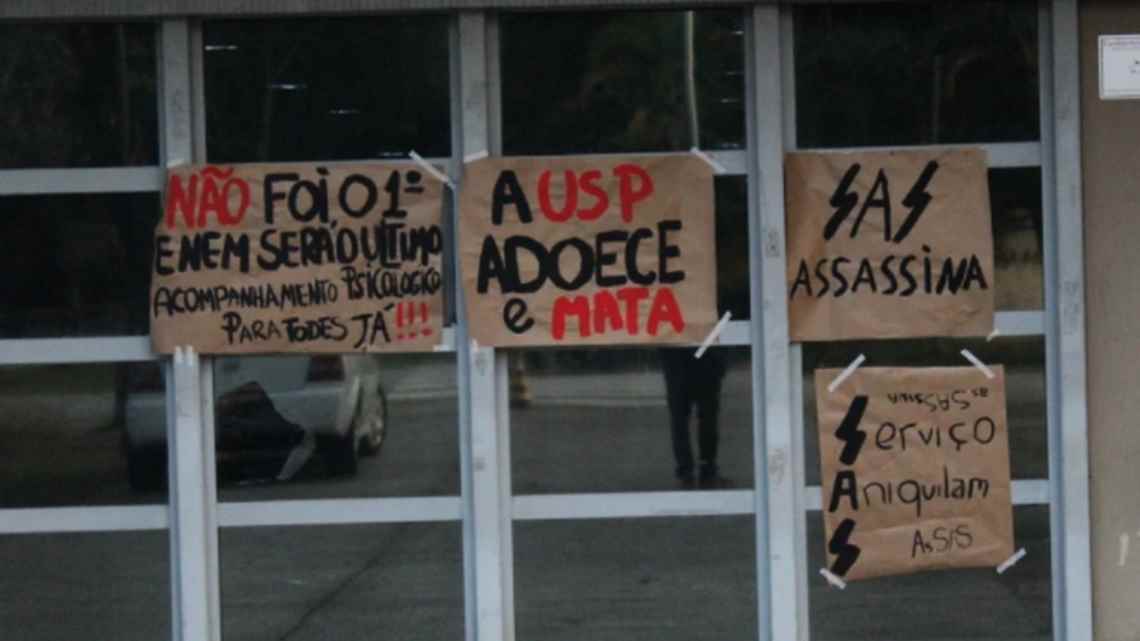 NÃO FOI O 1º
E NEM SERÁ O ULTIMO
ACOMPANHAMENTO PSICOLOGICO
PARA TODES JÁ!!!
A USP
ADOECE
e MATA
SAS
ASSASSINA
SERVIÇO
ANIQUILAM
ASSIS